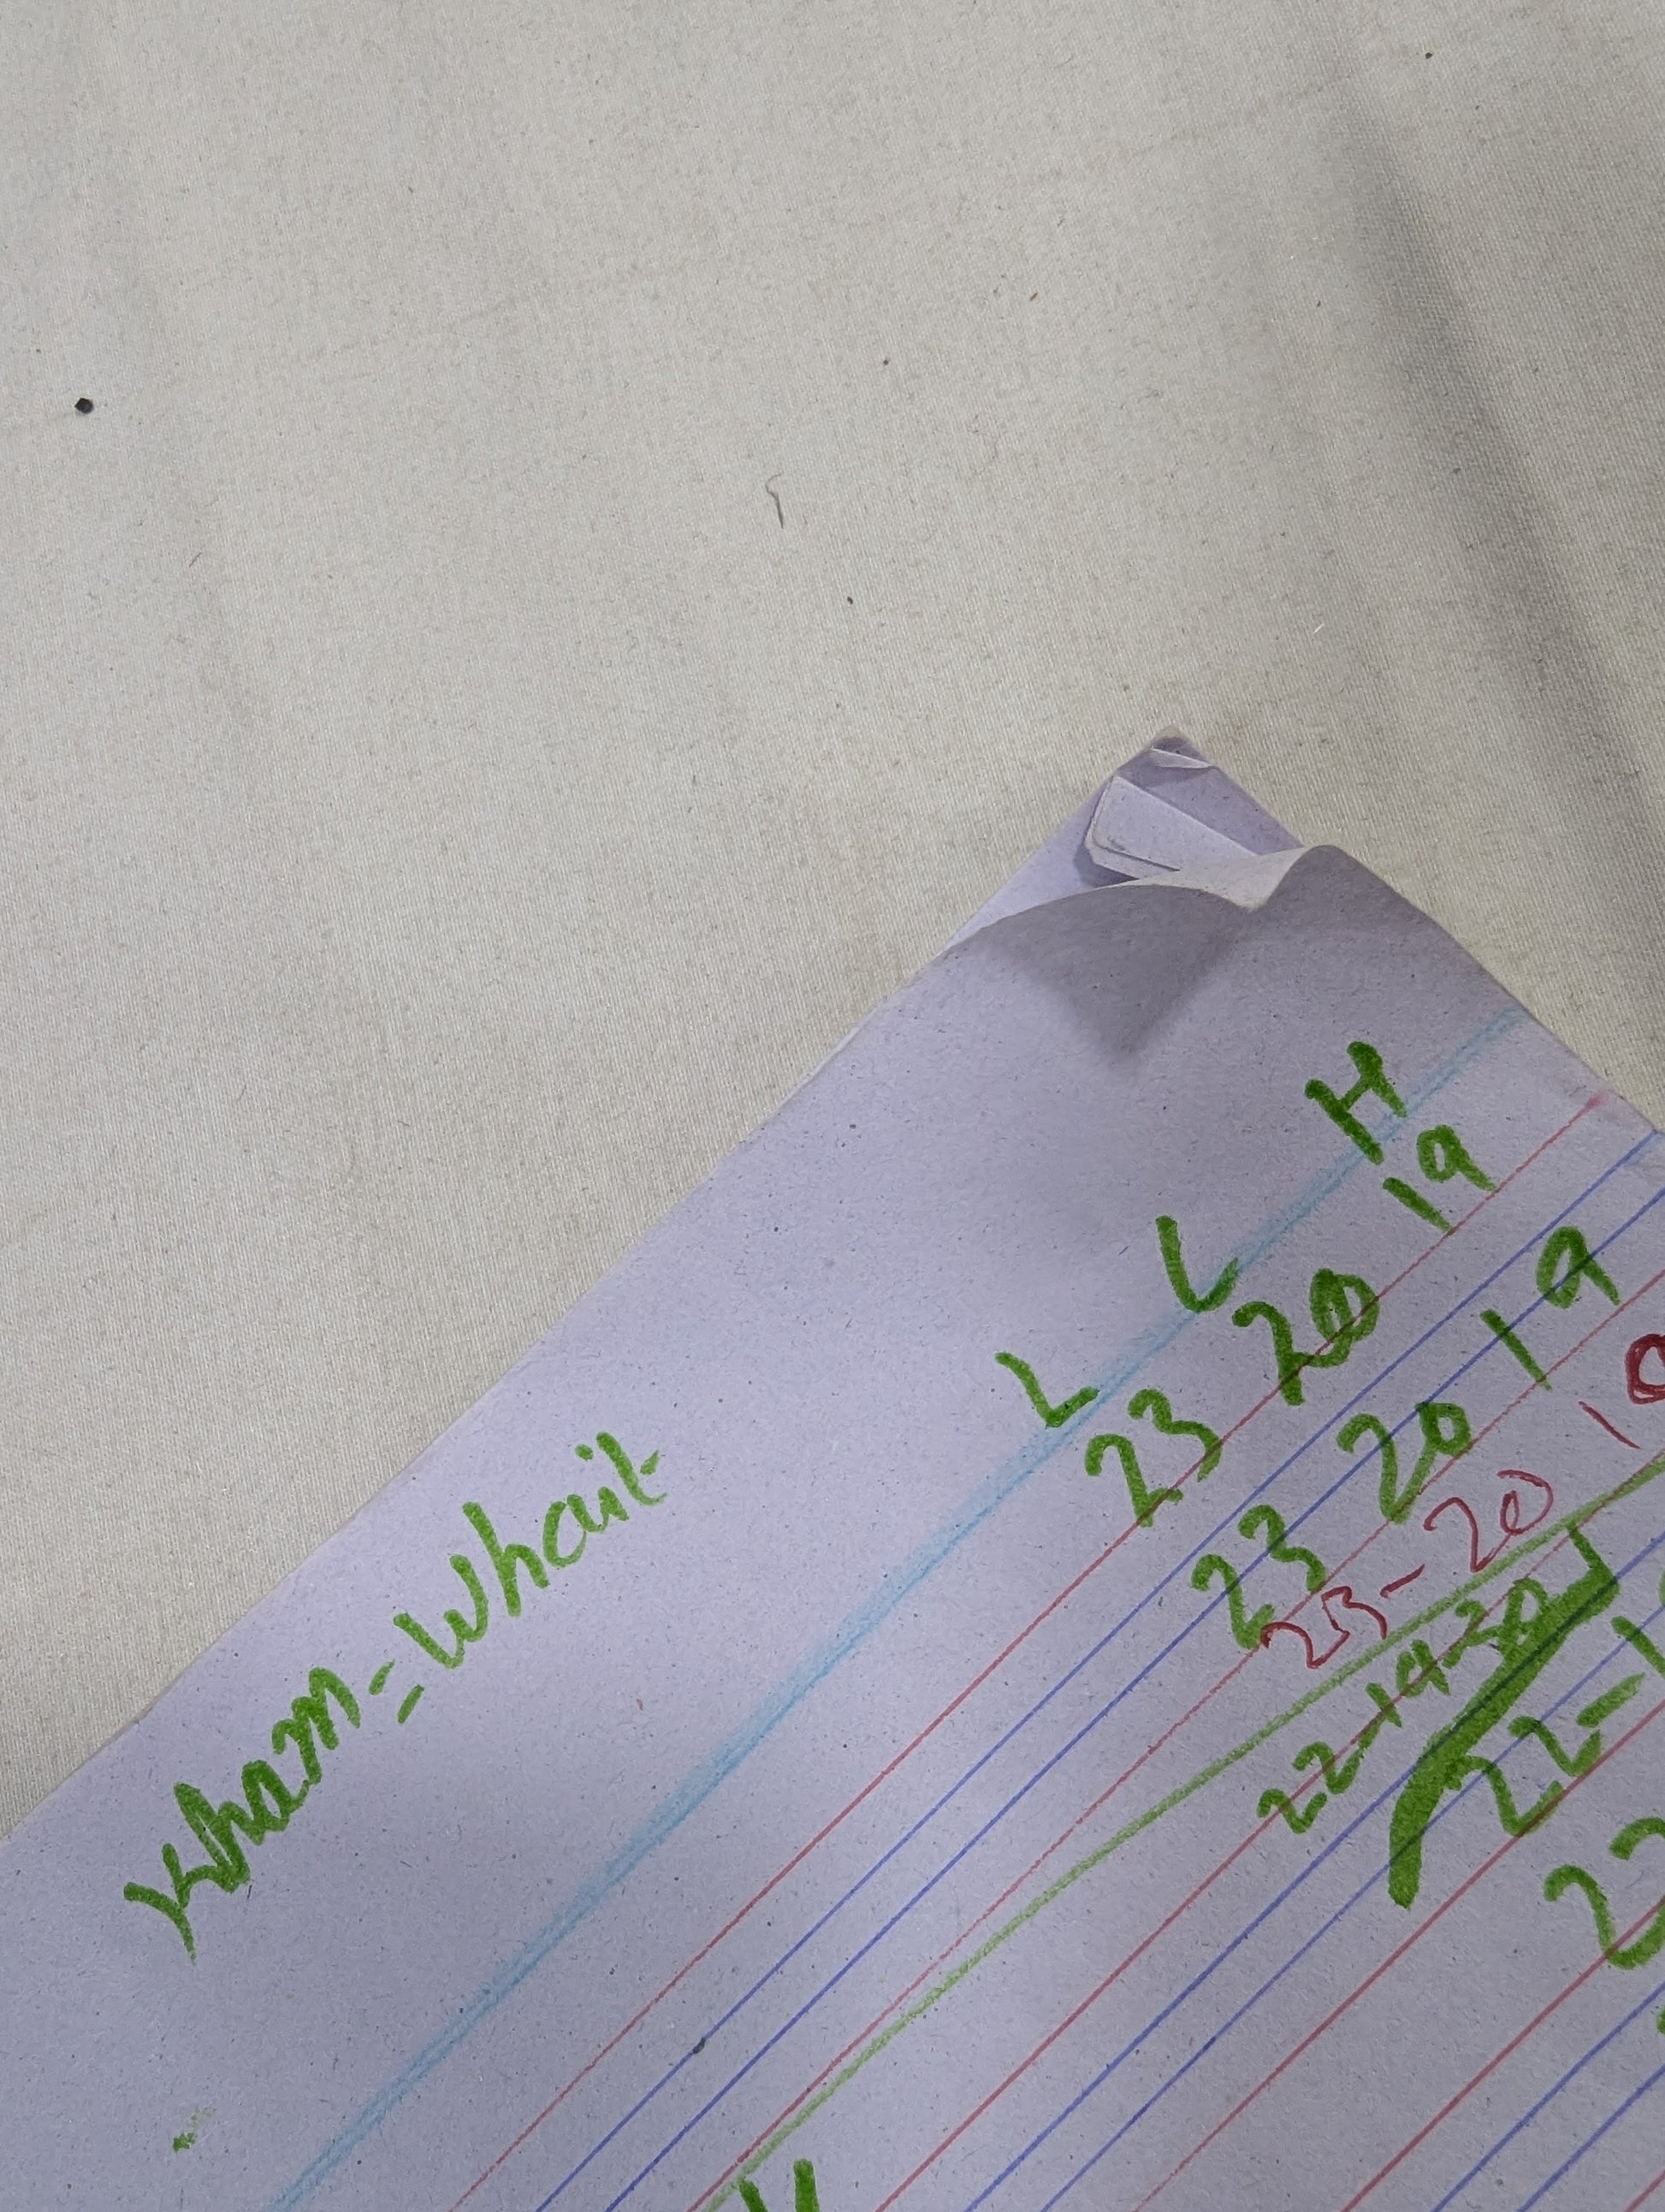 Kham = Whait
L L H
23 20 19
23 20 19
23-20
22-19-30
22-